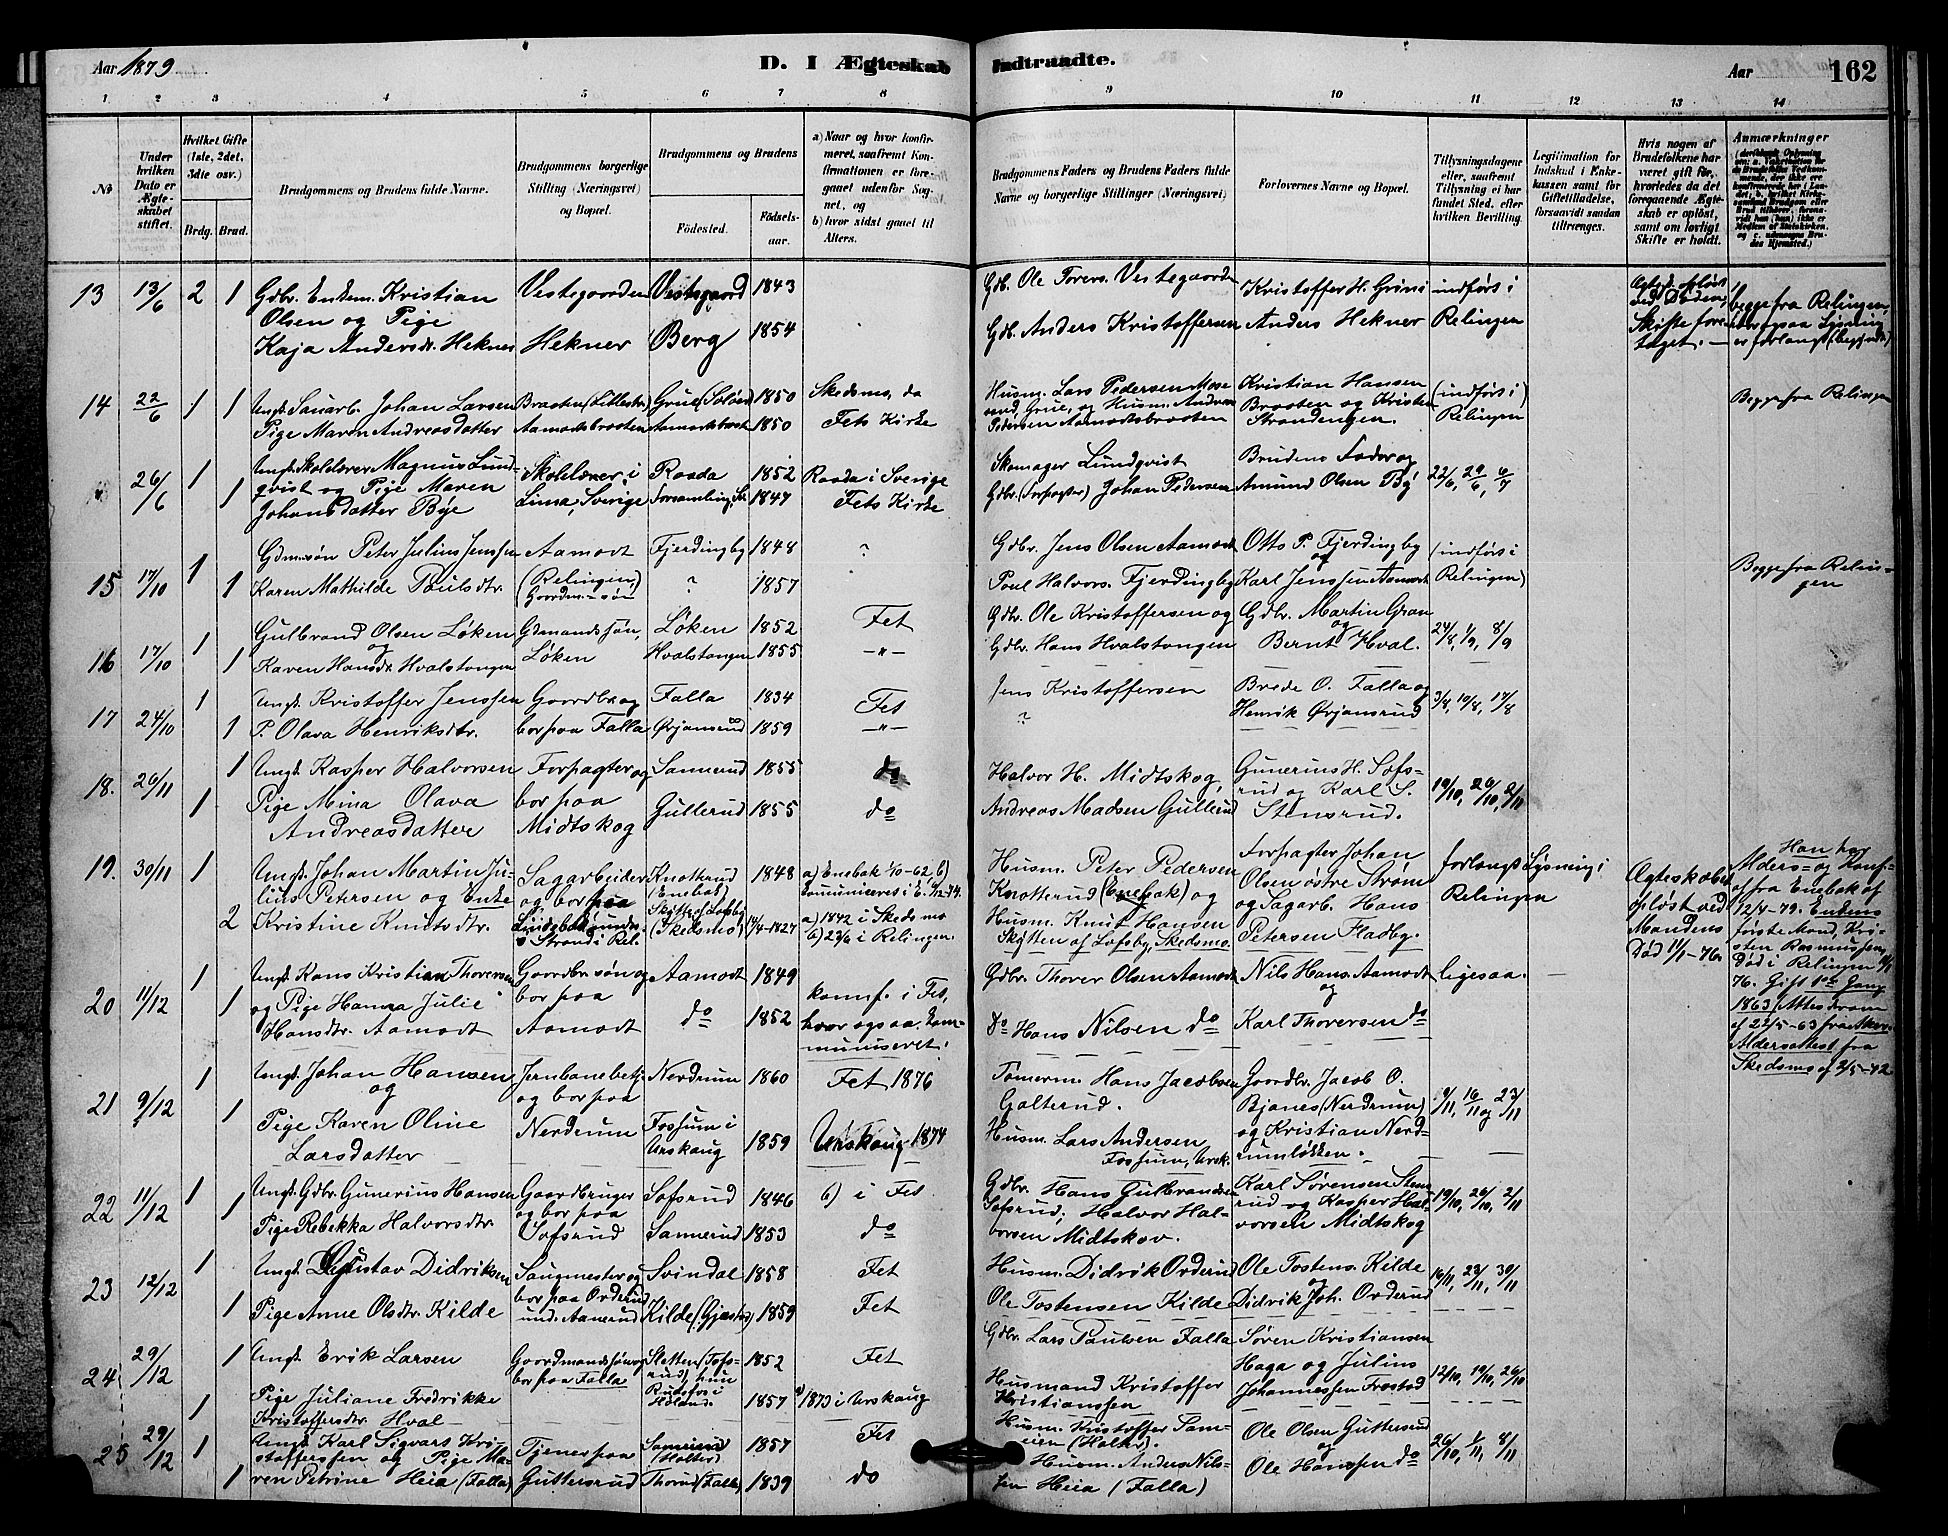 Aar 1879
D. I Ægteskab Indtraadte.
Aar
162
1 2 3 4 5 6 7 8 9 10 11 12 13 14
No
Under hvilken Dato er Ægteskabet stiftet.
Hvilket Gifte (1ste, 2det, 3die osv.)
Brdg. Brud.
Brudgommens og Brudens fulde Navne.
Brudgommens borgerlige Stilling (Næringsvei) og Bopæl.
Brudgommens og Brudens
Fødested.
Fødselsaar.
a) Naar og hvor konfirmeret, saafremt Konfirmationen er foregaaet udenfor Sognet, og
b) hvor sidst gaaet til Alters.
Brudgommens Faders og Brudens Faders fulde Navne og borgerlige Stillinger (Næringsvei)
Forlovernes Navne og Bopæl.
Tillysningsdagene eller, saafremt Tillysning ei har fundet Sted, efter hvilken Bevilling.
Legitimation for Indskud i Enkekassen samt for Giftetilladelse, forsaavidt saadan tiltrænges.
Hvis nogen af Brudefolkene har været gift før, hvorledes da det foregaaende Ægteskab er opløst, samt om lovligt Skifte er holdt.
Anmærkninger
13 13/6 2 1 Gdbr. Enkem. Kristian Olsen og Pige Kaja Andersdr. Hekner
Vestegaarden Hekner
Vestegaard 1843
Berg 1854
Gdb. Ole Torers. Vestegaarden
Gdb. Anders Kristoffersen
Kristoffer H. Grini
Anders Hekner
indførs i Relingen
Ægtesk. opløst ved Døden, Skifte foretaget.
begge fra Relingen,
14 22/6 1 1 Ungk. Sauarb. Johan Larsen
Pige Maren Andreasdatter
Braaten (Lillestr.)
Aamodtbraaten
Grue (Solør) 1850
Aamodtbraat. 1850
Skedsmo, da
Fets Kirke
Husm. Lars Pedersen
Grue, og Husm. Andreas
Pedersen Aamodtsbraaten
Kristian Hansen
Braaten og Kristen
Strandengen.
(indførs i Relingen
Begge fra Relingen
26/6 1 1 Ungk. Skolelærer Magnus Lundqvist og Pige Maren Johansdatter Bye
Skolelærer i Lima, Sverige
Raada 1852
1847
Raada i Sverige
Fets Kirke
Skomager Lundqvist
Gdbr. (Forpagter) Johan Pedersen
Brudens Fader og
Amund Olsen By
22/6, 29/6, 6/7
15 17/10 1 1 Gdm.søn Peter Julius Jenssen
Karen Mathilde Poulsdtr.
Aamodt
(Relingen) Gaardm.-søn
Fjerdingby 1848 ?
? 1857
Gdbr. Jens Olsen Aamodt
Poul Halvors. Fjerdingby
Otto P. Fjerdingby
og
Karl Jenssen Aamodt
(indførs i Relingen)
Begge fra Relingen
16 17/10 1 1 Gulbrand Olsen Løken
og
Karen Hansdr. Hvalstangen
Gdmandssøn, Løken
Løken 1852 Fet
Hvalstangen 1855 -"-
Gdbr. Ole Kristoffersen og
Gdbr. Hans Hvalstangen
Gdbr. Martin Gran
og
Bernt Hval.
24/8, 1/9, 8/9
17 24/10 1 1 Ungk. Kristoffer Jenssen
P. Olava Henriksdtr.
Gaardbr. og bor paa Falla
Falla 1834 Fet
Ørjansrud 1859 -"-
Jens Kristoffersen
?
Brede O. Falla og
Henrik Ørjansrud
3/8, 10/8, 17/8
18. 26/11 1 1 Ungk. Kasper Halvorsen
Pige Mina Olava
Andreasdatter
Forpagter og bor paa Midtskog
Sannerud 1855 do
Gullerud 1855 do
Halvor H. Midtskog,
Andreas Madsen Gullerud
Gunerius H. Sofsrud og Karl S. Stensrud.
19/10, 26/10, 2/11
19. 30/11 1 2 Ungk. Johan Martin Julius Petersen og Enke
Kristine Knudsdtr.
Sagarbeider og bor paa
Strand i Rel.
Knotterud (Enebak) 1848
Skjøtten af Lofsby (Skedsmo) 14/4-1827
a) Enebak 1/10-62, b)
a) 1842 i Skedsmo
b) 23/6 i Relingen.
Husm. Peter Pedersen
Knotterud (Enebak) og
Husm. Knud Hansen
Skjøtten af Lofsby, Skedsmo.
Forpagter Johan
Olsen østre Strøm
og Sagarb. Hans
Petersen Fladby.
forlangt Lysning i Relingen
Ægteskabet opløst ved Mandens Død 11/1-76.
Han har Alders- og Konf- fra Enebak af 12/4-79. Enkens første Mand, Kristen Rasmussen, død i Relingen 11/1 76. Gift 1ste Gang 1863, Attest
af 22/5-63 fra
Aldersattest fra Skedsmo af 2/5-42
20 11/12 1 1 Ungk. Hans Kristian Thoversen
og Pige Hanna Julie
Hansdtr. Aamodt
Gaardbr.søn og bor paa Aamodt
Aamodt 1849
do 1852
konf. i Fet, hvor ogsaa kommuniseret.
Gdbr. Thover Olsen Aamodt
do Hans Nilsen do
Nils Hans. Aamodt
og
Karl Thoversen do
ligesaa.
21 9/12 1 1 Ungk. Johan Hansen
og
Pige Karen Oline
Larsdatter
Jernbanebetj. og bor paa Nerdrum
Nerdrum 1860 Fet 1876
Fossum i Urskaug 1859 Urskaug 1874
Tømerm. Hans Jacobsen
Galterud.
Husm. Lars Andersen
Fossum, Ursk.
Gaardbr. Jacob O.
Bjanes (Nerdrum)
og Kristian Nerdrumløkken.
9/11, 16/11 og 23/11
22 11/12 1 1 Ungk. Gdbr. Gunerius Hansen
Pige Rebekka Halvorsdtr.
Gaardbruger og bor paa Sofsrud
Sofsrud 1846 b) i Fet
Sannerud 1853 do
Gdbr. Hans Gulbrandsen
Sofsrud; Halvor Halvorsen Midtskov.
Karl Sørensen Stensrud og Kasper Halvorsen Midtskog
19/10, 26/10, 2/11
23 12/12 1 1 Ungk. Gustav Didriksen
Pige Anne Olsdtr. Kilde
Saugmester og bor paa Orderud und. Aanerud
Svindal 1858 Fet
Kilde 1859 Fet
Husm. Didrik Orderud
Ole Tostensen Kilde
Ole Tostens. Kilde
og
Didrik Joh. Orderud
16/11, 23/11, 30/11
24 29/12 1 1 Ungk. Erik Larsen
Pige Juliane Fredrikke
Kristoffersdtr. Hval
Gaardmandssøn og bor paa Falla
Sletten (Tofsrud) hun
i Høland. 1852 Fet
1857 a) 1873 i Urskaug
Gdbr. Lars Paulsen Falla
Husmand Kristoffer
Kristianssen
Søren Kristiansen
Haga og Julius
Johannessen Frostad
12/10, 19/10, 26/10
25 29/12 1 1 Ungk. Karl Sigvart Kristoffersen og Pige Maren Petrine Heia (Falla)
Tjener paa Guttersrud
(Holter) 1857 Fet
Thorud (Falla) 1839 do
Husm. Kristoffer
(Holter).
Husm. Anders Nilssen Heia (Falla)
Ole Olsen Guttersrud
og
Ole Hanssen do
26/10, 1/11, 8/11